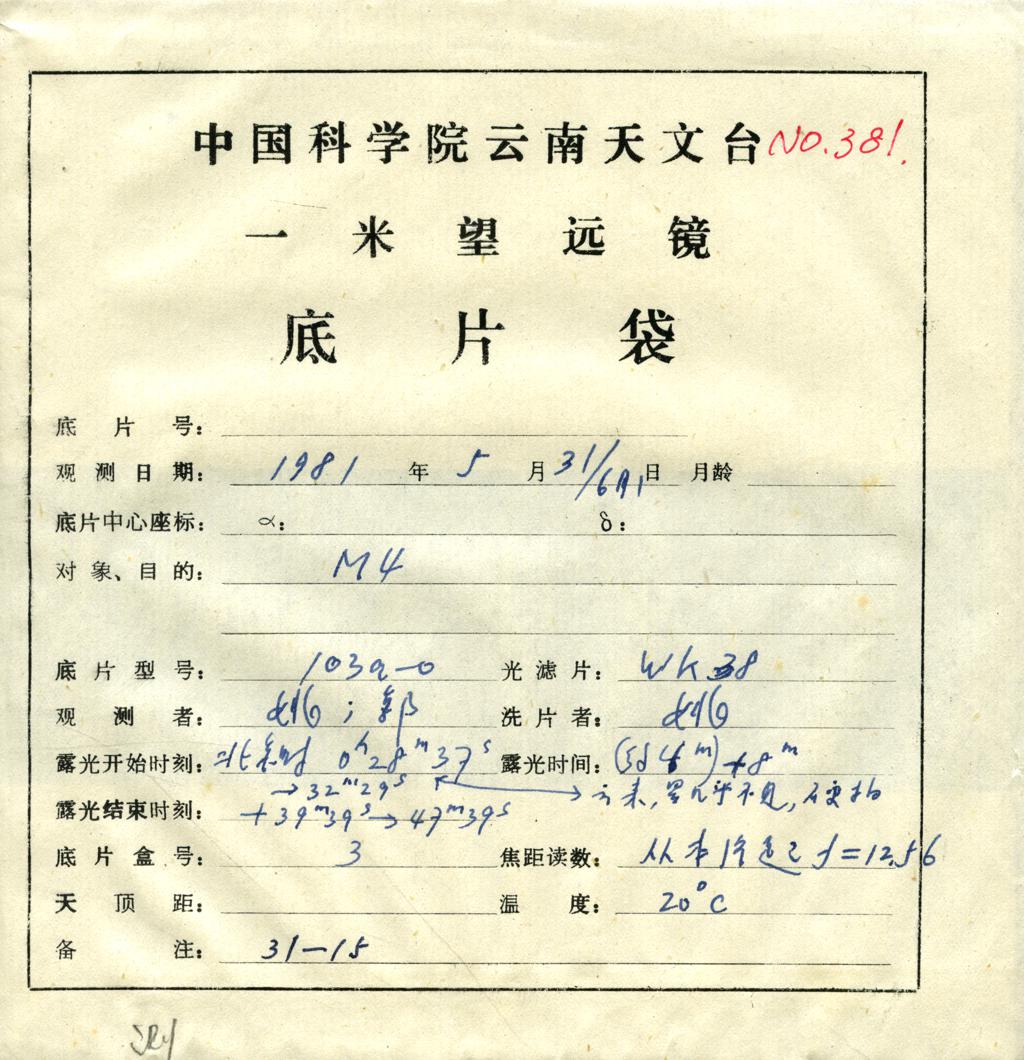 中国科学院云南天文台 NO.381.
一米望远镜
底片袋
底片号：
观测日期： 1981 年 5 月 31/6月1 日 月龄
底片中心座标： α： δ：
对象、目的： M4
底片型号： 103a-O 光滤片： WK38
观测者： ；郭 洗片者：
露光开始时刻： 北京时 0h28m37s 露光时间： 4m)+8m
→32m29s 云来，星几乎不见，
露光结束时刻： +39m39s→47m39s
底片盒号： 3 焦距读数： 从本 f=12.56
天顶距： 温度： 20°C
备注： 31-15